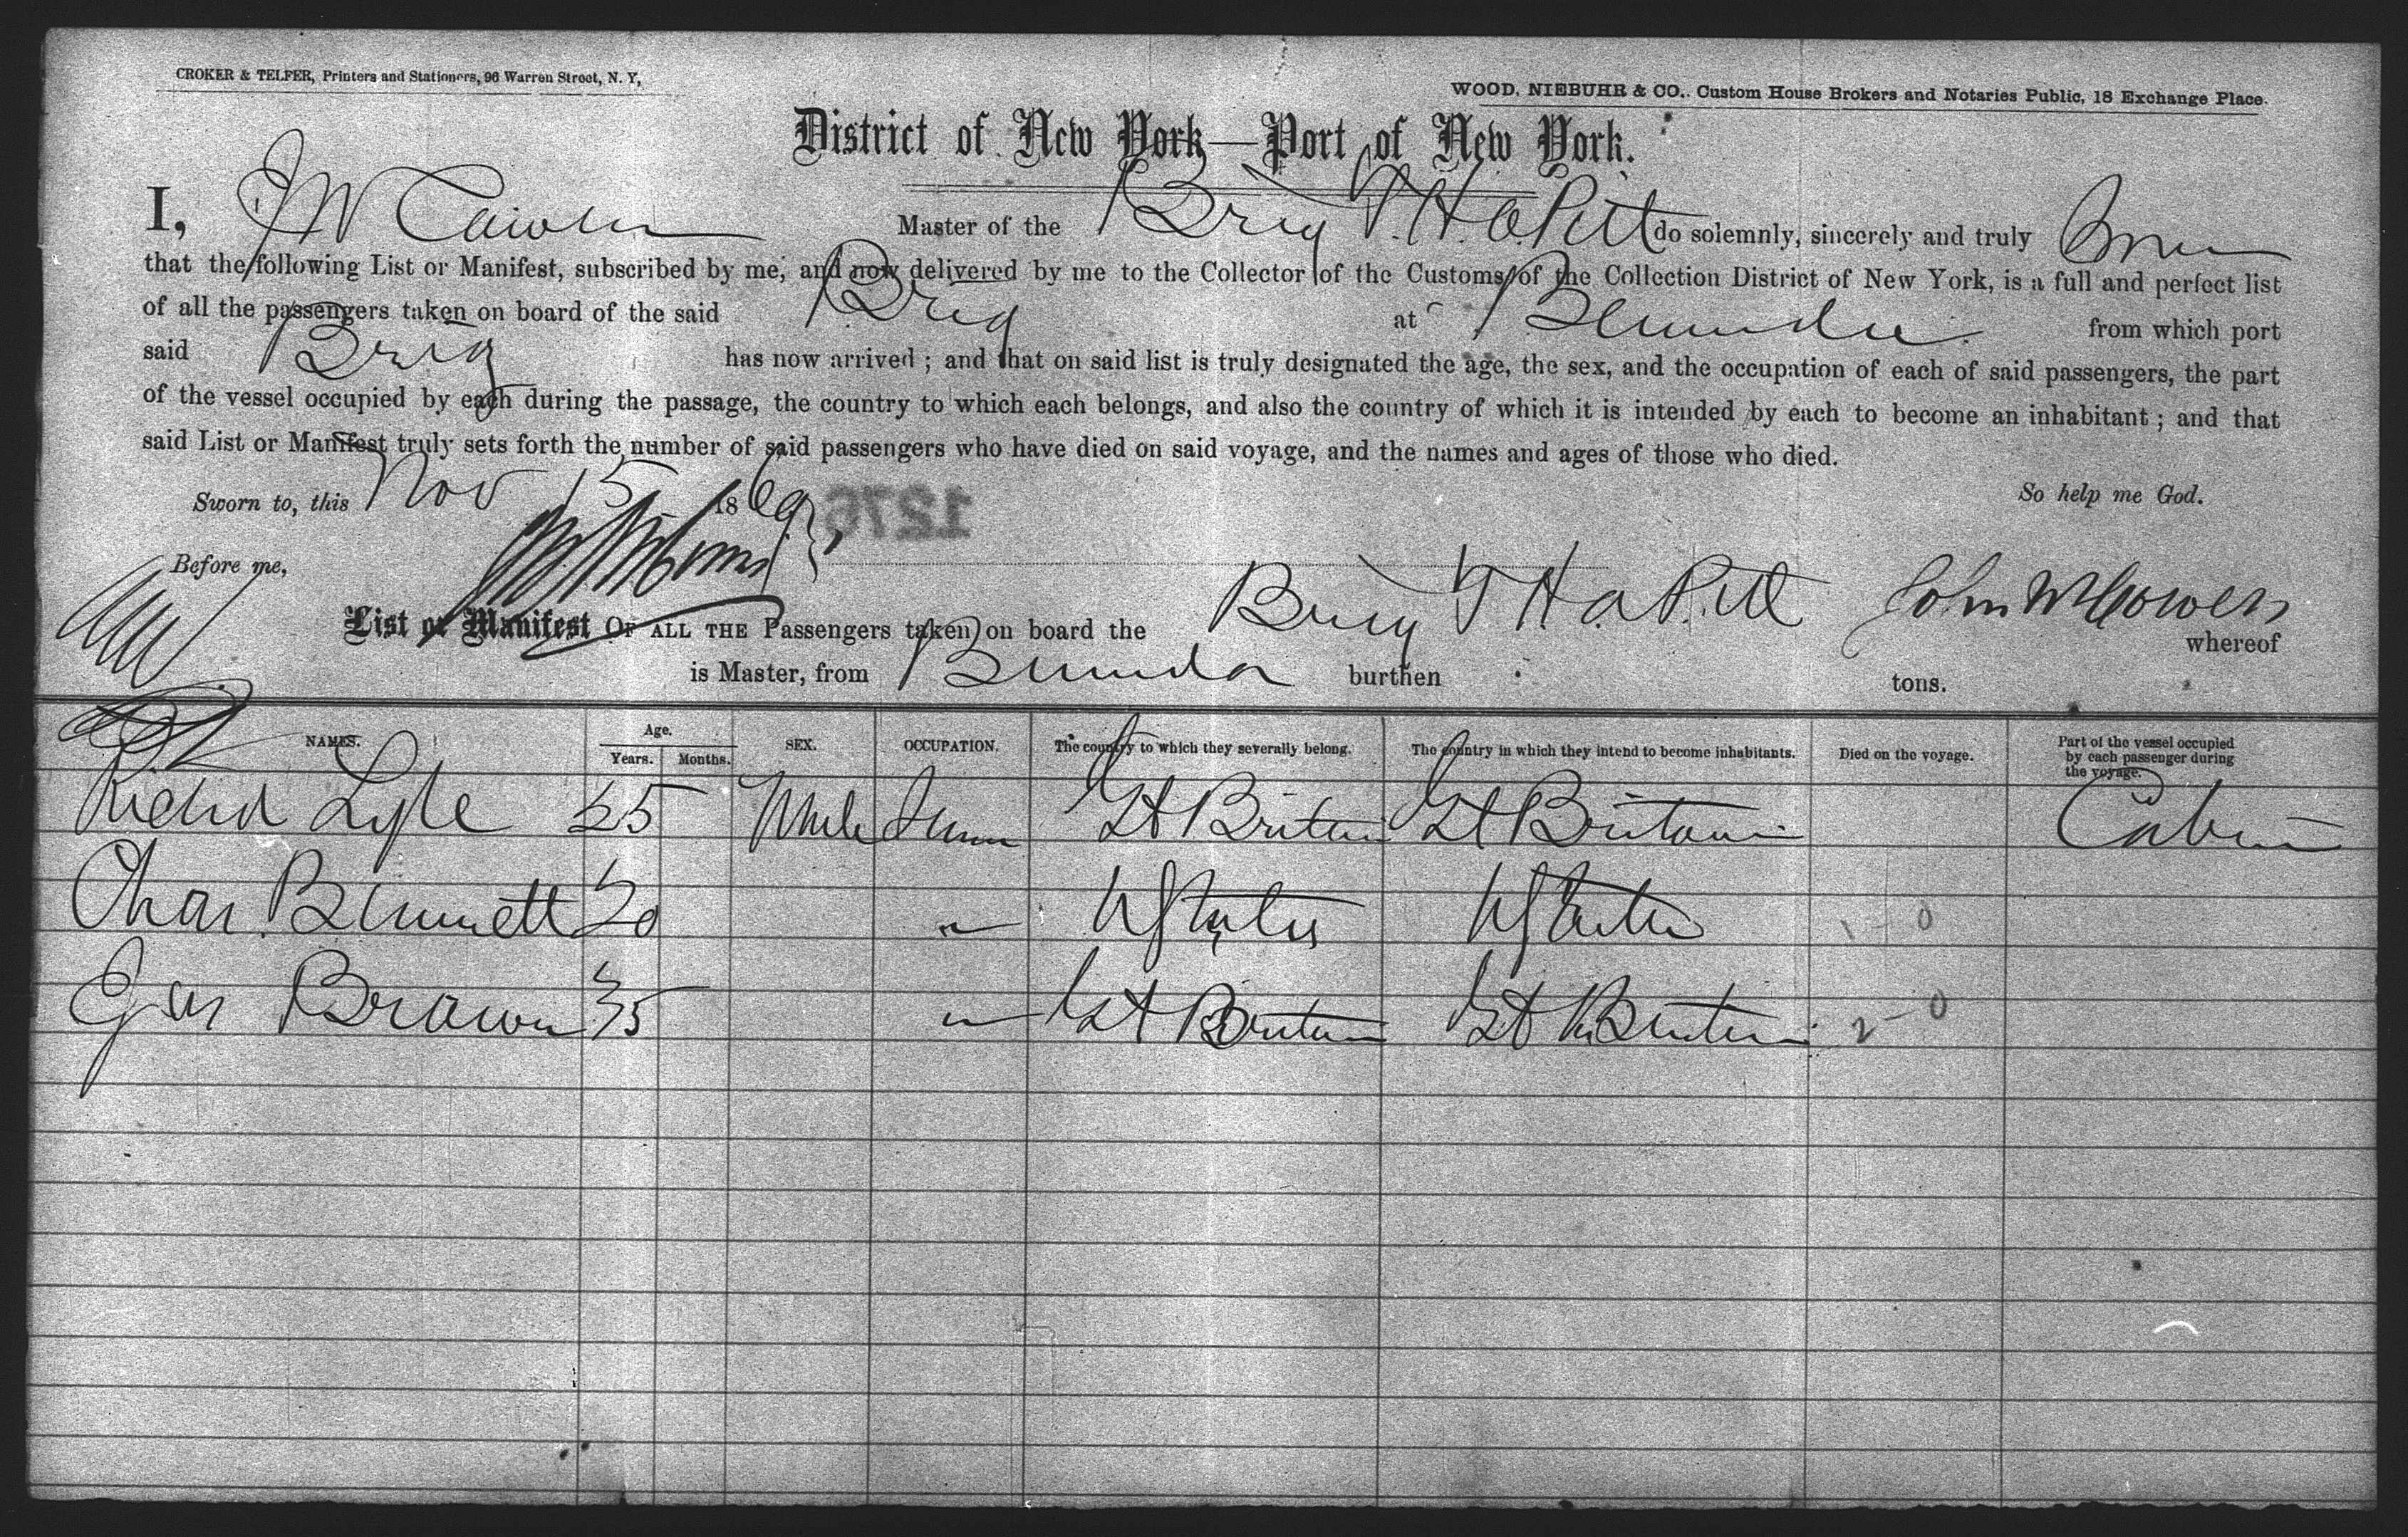 CROKER & TELFER, Printers and Stationers, 96 Warren Street, N. Y,
WOOD, NIEBUHR & CO., Custom House Brokers and Notaries Public, 18 Exchange Place.
District of New York—Port of New York.
I, J W Master of the Brig T. H. A. Pitt do solemnly, sincerely and truly
that the following List or Manifest, subscribed by me, and now delivered by me to the Collector of the Customs of the Collection District of New York, is a full and perfect list
of all the passengers taken on board of the said Brig at from which port
said Brig has now arrived ; and that on said list is truly designated the age, the sex, and the occupation of each of said passengers, the part
of the vessel occupied by each during the passage, the country to which each belongs, and also the country of which it is intended by each to become an inhabitant ; and that
said List or Manifest truly sets forth the number of said passengers who have died on said voyage, and the names and ages of those who died.
Sworn to, this Nov 15 1869 1276 So help me God.
Before me,
List or Manifest OF ALL THE Passengers taken on board the Brig T H A Pitt John W Cowen whereof
is Master, from Bermuda burthen tons.
NAMES. Age. Years. Months. SEX. OCCUPATION. The country to which they severally belong. The country in which they intend to become inhabitants. Died on the voyage. Part of the vessel occupied by each passenger during the voyage.
Richd Lyle 25 Male Gt Britain Gt Britain Cabin
Chas. Bennett 20 " U States U States
Jas Brown 35 " Gt Britain Gt Britain